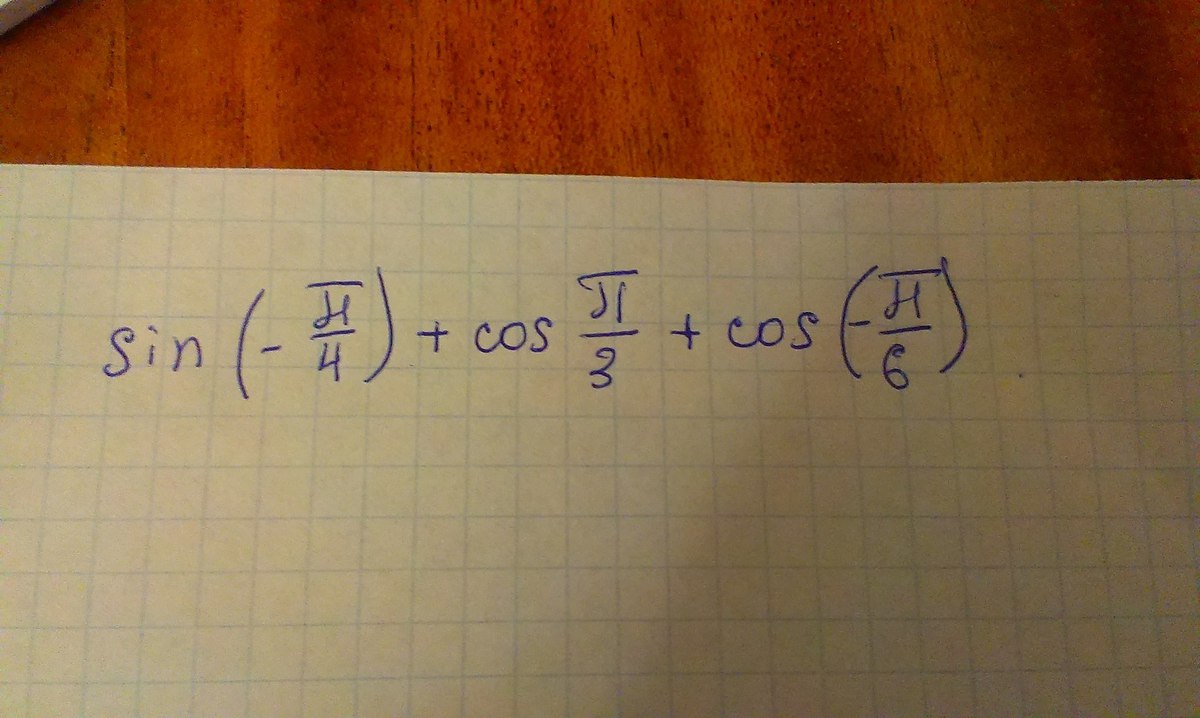 sin (- π/4) + cos π/3 + cos (- π/6)